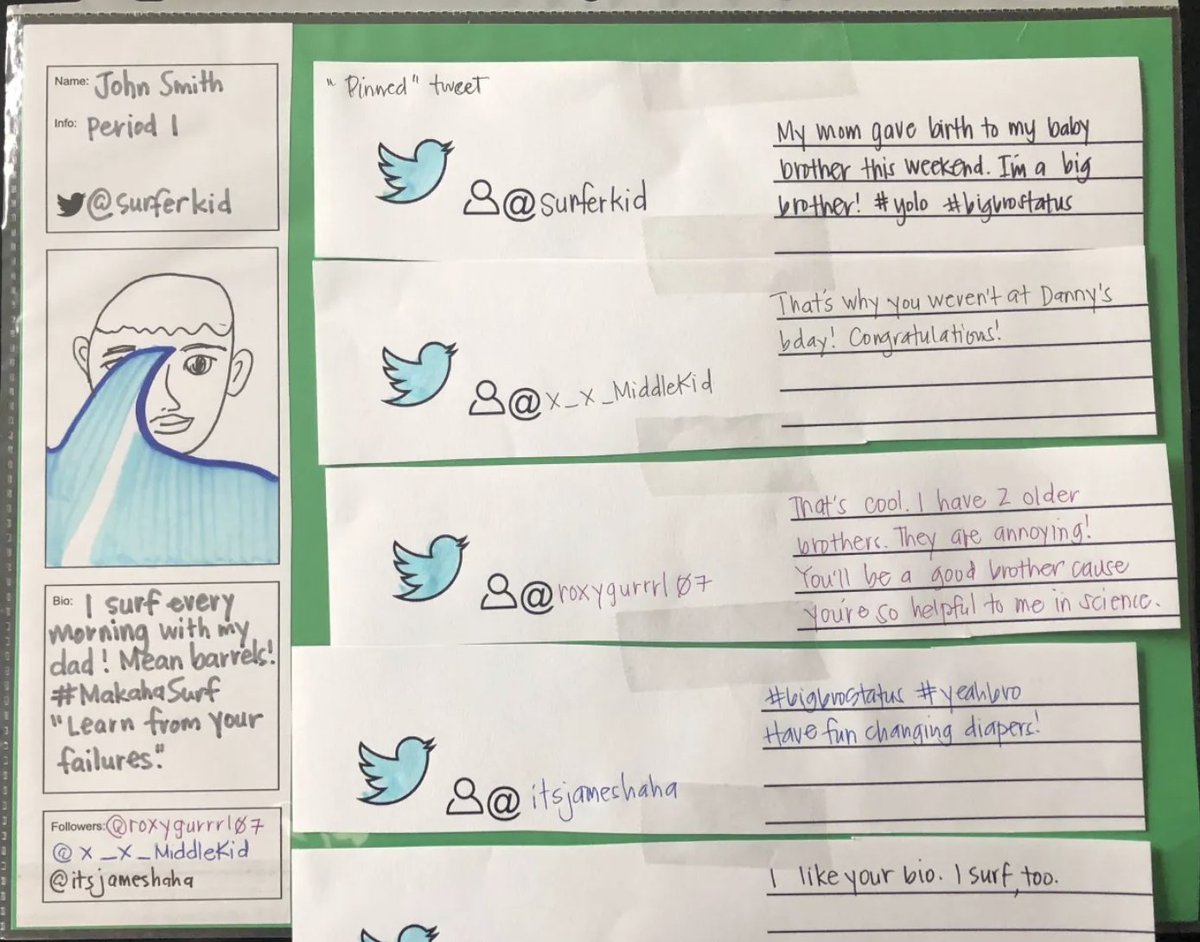 Name: John Smith
Info: Period 1
@surferkid
Bio: I surf every
morning with my
dad! Mean barrels!
#MakahaSurf
"Learn from your
failures."
Followers: @roxygurrrl07
@x_x_MiddleKid
@itsjameshaha
"Pinned" tweet
@surferkid
My mom gave birth to my baby
brother this weekend. I'm a big
brother! #yolo #bigbrostatus
@x_x_MiddleKid
That's why you weven't at Danny's
bday! Congratulations!
@roxygurrrl07
That's cool. I have 2 older
brothers. They are annoying!
You'll be a good brother cause
you're so helpful to me in science.
@itsjameshaha
#bigbrostatus #yeahbro
Have fun changing diapers!
I like your bio. I surf, too.